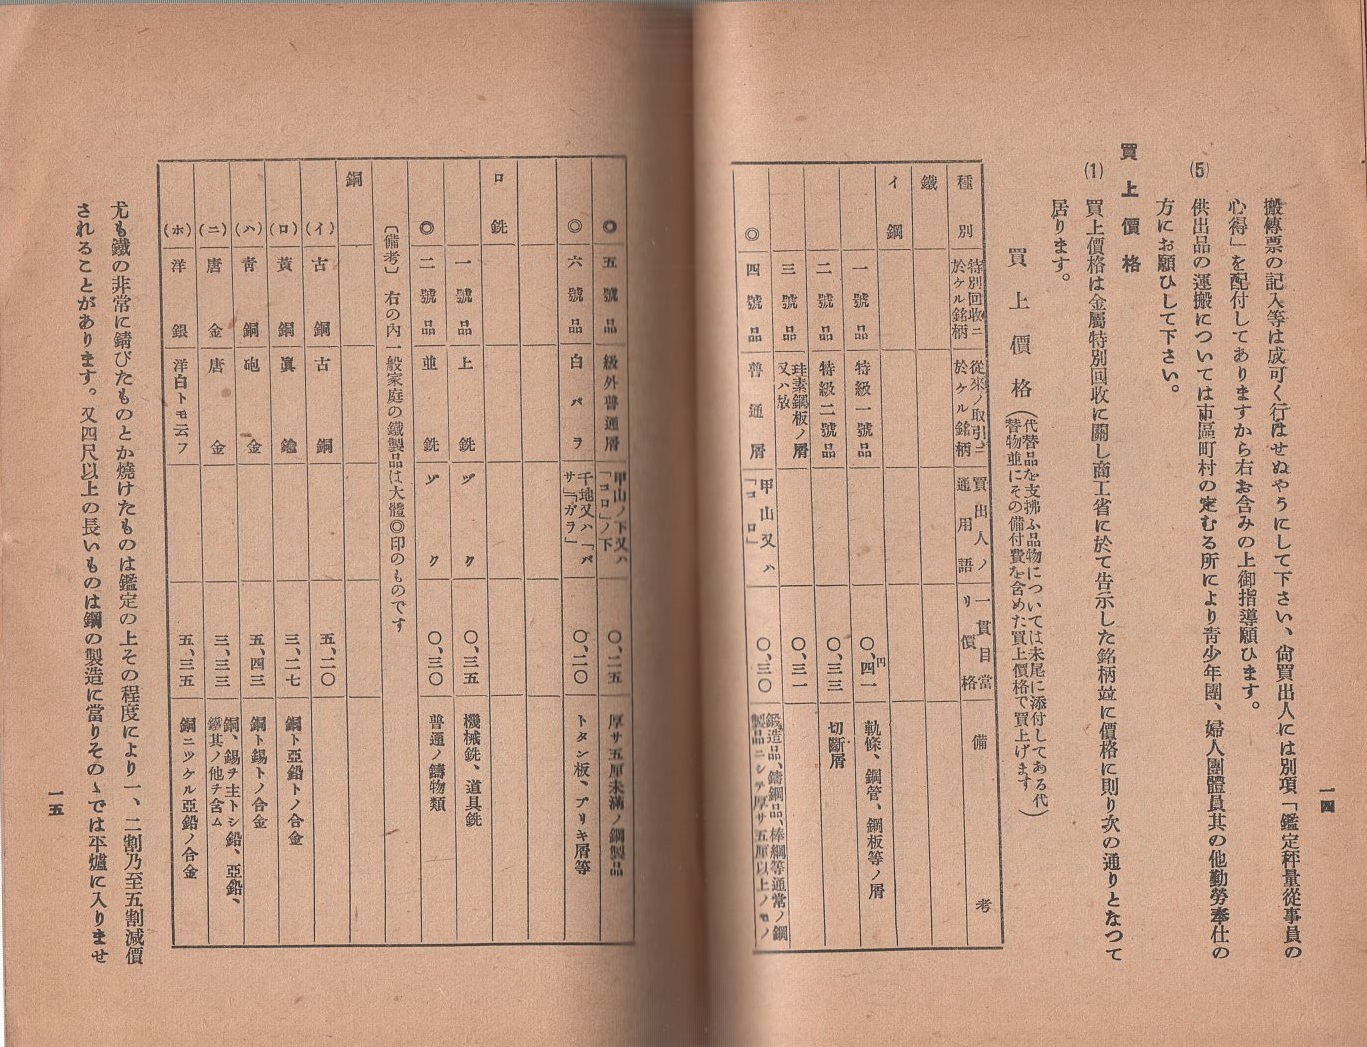 搬傳票の記入等は成可く行はせぬやうにして下さい、尙買出人には別項「鑑定秤量從事員の
心得」を配付してありますから右お含みの上御指導願ひます。
⑸ 供出品の運搬については市區町村の定むる所により靑少年團、婦人團體員其の他勤勞奉仕の
方にお願ひして下さい。
買上價格
⑴ 買上價格は金屬特別回收に關し商工省に於て吿示した銘柄竝に價格に則り次の通りとなつて
居ります。
買上價格(代替品を支拂ふ品物については末尾に添付してある代
替物並にその備付費を含めた買上價格で買上げます)
種別 特別回收ニ於ケル銘柄 從來ノ取引ニ於ケル銘柄 買出人ノ通用語 一貫目當リ價格 備考
鐵
イ 鋼
一號品 特級一號品 〇、四一円 軌條、鋼管、鋼板等ノ屑
二號品 特級二號品 〇、三三 切斷屑
三號品 珪素鋼板ノ屑又ハ故 〇、三一
◎ 四號品 普通屑 甲山又ハ「コロ」 〇、三〇 鍛造品、鑄鋼品、棒鋼等通常ノ鋼製品ニシテ厚サ五厘以上ノモノ
一四
◎ 五號品 級外普通屑 甲山ノ下又ハ「コロ」ノ下 〇、二五 厚サ五厘未滿ノ鋼製品
◎ 六號品 白バラ 千地又ハ「バサ」「ガラ」 〇、二〇 トタン板、ブリキ屑等
ロ 銑
一號品 上銑 ヅク 〇、三五 機械銑、道具銑
◎ 二號品 並銑 ヅク 〇、三〇 普通ノ鑄物類
〔備考〕 右の內一般家庭の鐵製品は大體◎印のものです
銅
(イ) 古銅 古銅 五、二〇
(ロ) 黃銅 眞鍮 三、二七 銅ト亞鉛トノ合金
(ハ) 靑銅 砲金 五、四三 銅ト錫トノ合金
(ニ) 唐金 唐金 三、三三 銅、錫ヲ主トシ鉛、亞鉛、鐵其ノ他ヲ含ム
(ホ) 洋銀 洋白トモ云フ 五、三五 銅ニツケル亞鉛ノ合金
尤も鐵の非常に錆びたものとか燒けたものは鑑定の上その程度により一、二割乃至五割減價
されることがあります。又四尺以上の長いものは鋼の製造に當りそのゝでは平爐に入りませ
一五